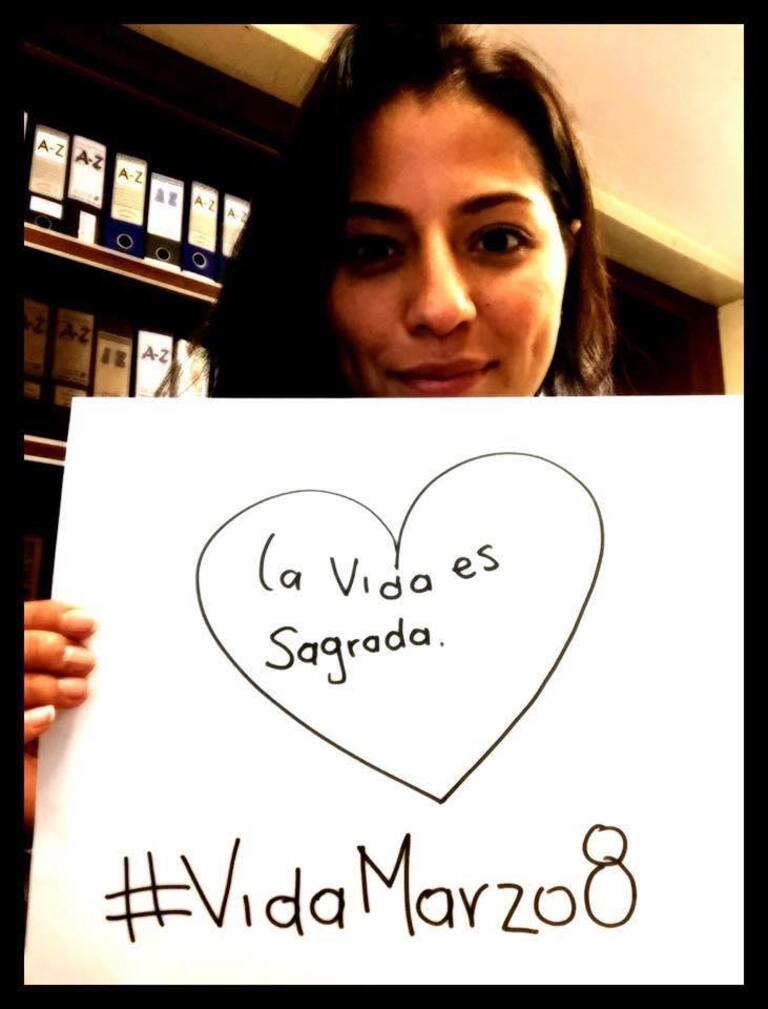 A-Z
A-Z
A-Z
A-Z
A-Z
A-Z
A-Z
A-Z
La Vida es
Sagrada.
#VidaMarzo8